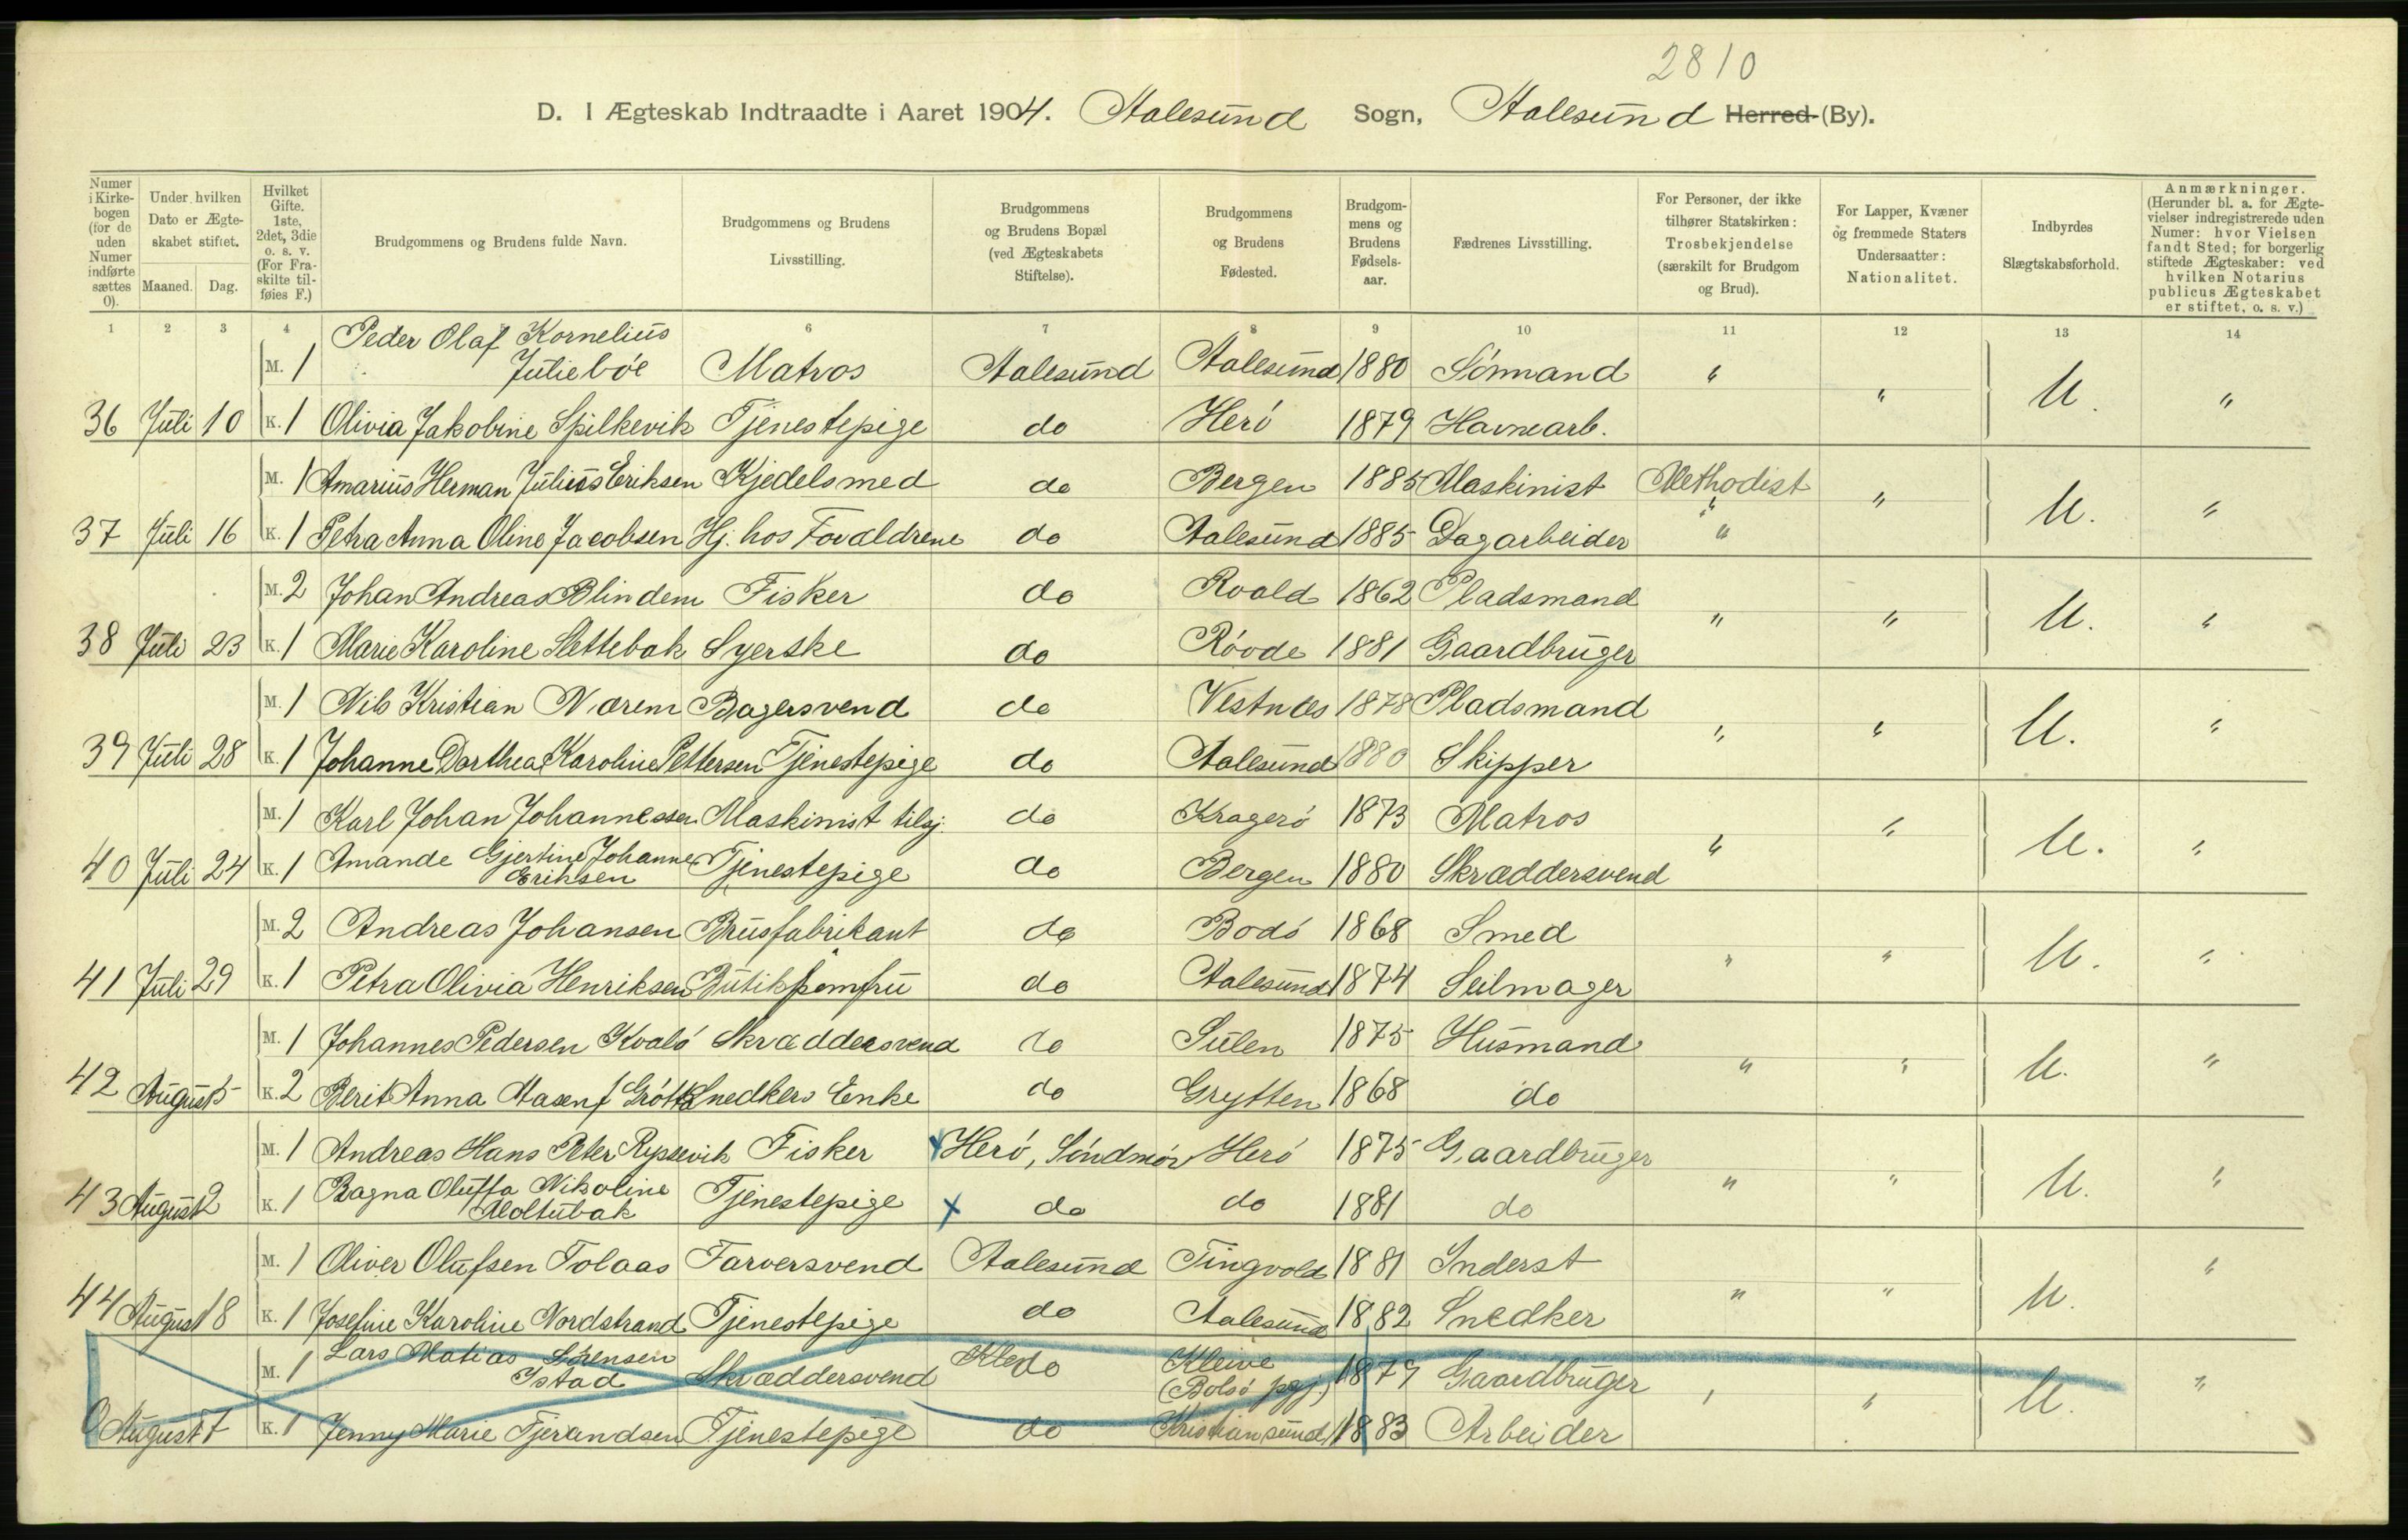 2810
D. I Ægteskab Indtraadte i Aaret 1904. Aalesund Sogn, Aalesund Herred (By).
Numer i Kirkebogen (for de uden Numer indførte sættes 0).
Under hvilken Dato er Ægteskabet stiftet.
Maaned. Dag.
Hvilket Gifte. 1ste, 2det, 3die o. s. v. (For Fraskilte tilføies F.)
Brudgommens og Brudens fulde Navn.
Brudgommens og Brudens Livsstilling.
Brudgommens og Brudens Bopæl (ved Ægteskabets Stiftelse).
Brudgommens og Brudens Fødested.
Brudgommens og Brudens Fødselsaar.
Fædrenes Livsstilling.
For Personer, der ikke tilhører Statskirken: Trosbekjendelse (særskilt for Brudgom og Brud).
For Lapper, Kvæner og fremmede Staters Undersaatter: Nationalitet.
Indbyrdes Slægtskabsforhold.
Anmærkninger. (Herunder bl. a. for Ægtevielser indregistrerede uden Numer: hvor Vielsen fandt Sted; for borgerlig stiftede Ægteskaber: ved hvilken Notarius publicus Ægteskabet er stiftet, o. s. v.)
1 2 3 4 6 7 8 9 10 11 12 13 14
M. 1 Peder Olaf Kornelius Juliebøe Matros Aalesund Aalesund 1880 Sømand " " U. "
36 Juli 10 K. 1 Olivia Jakobine Spilkevik Tjenestepige do Herø 1879 Havnearb.
M. 1 Amarius Herman Julius Eriksen Kjedelsmed do Bergen 1885 Maskinist Methodist " U. "
37 Juli 16 K. 1 Petra Anna Oline Jacobsen Hj. hos Forældrene do Aalesund 1885 Dagarbeider "
M. 2 Johan Andreas Blindem Fisker do Roald 1862 Pladsmand " " U. "
38 Juli 23 K. 1 Marie Karoline Slettebak Syerske do Røvde 1881 Gaardbruger
M. 1 Nils Kristian Nærem Bagersvend do Vestnes 1878 Pladsmand " " U. "
39 Juli 28 K. 1 Johanne Dorthea Karoline Pettersen Tjenestepige do Aalesund 1880 Skipper
M. 1 Karl Johan Johannessen Maskinist tilsj. do Kragerø 1873 Matros " " U. "
40 Juli 24 K. 1 Amande Gjertine Johanne Eriksen Tjenestepige do Bergen 1880 Skræddersvend
M. 2 Andreas Johansen Brusfabrikant do Bodø 1868 Smed " " U. "
41 Juli 29 K. 1 Petra Olivia Henriksen Butikjomfru do Aalesund 1874 Seilmager
M. 1 Johannes Pedersen Kvalø Skræddersvend do Sulen 1875 Husmand " " U. "
42 August 5 K. 2 Berit Anna Aasen f. Grøtta Snedkers Enke do Grytten 1868 do
M. 1 Andreas Hans Peter Rypsevik Fisker x Herø, Søndmør Herø 1875 Gaardbruger " " U. "
43 August 2 K. 1 Ragna Oluffa Nikoline Moltubak Tjenestepige x do do 1881 do
M. 1 Oliver Olufsen Tolaas Farversvend Aalesund Tingvold 1881 Inderst " " U. "
44 August 8 K. 1 Josefine Karoline Nordstrand Tjenestepige do Aalesund 1882 Snedker
M. 1 Lars Matias Sørensen Istad Skræddersvend do Kleive (Bolsø pgj.) 1879 Gaardbruger " " U. "
0 August 7 K. 1 Jenny Marie Tjerandsen Tjenestepige do Kristiansund 1883 Arbeider